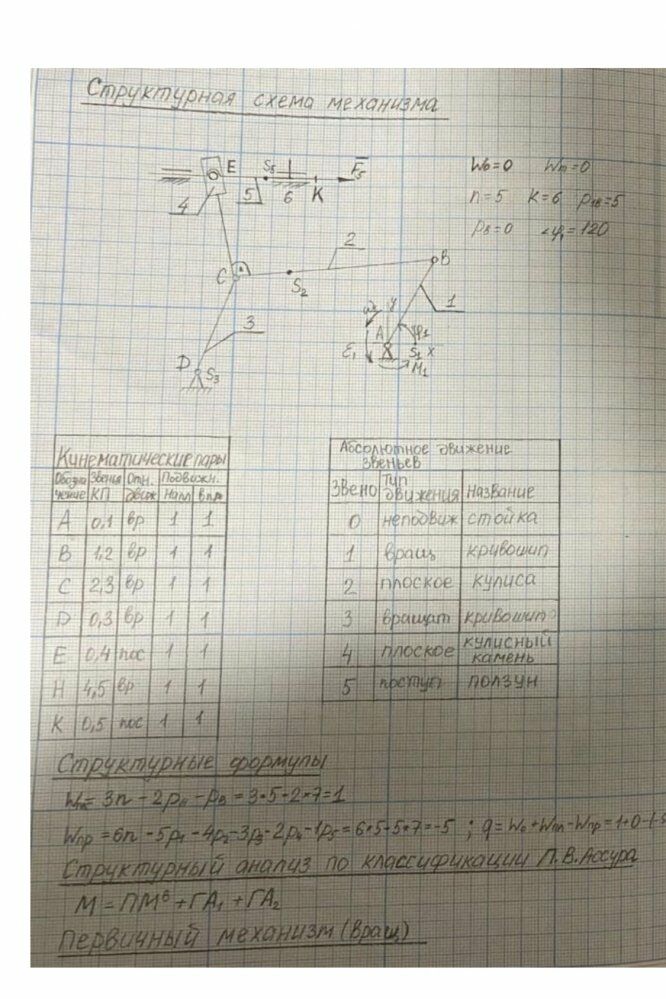 Структурная схема механизма
E S₅ F̄₅
4 5 6 K
W₀=0 Wп=0
n=5 K=6 p₁ₙ=5
pв=0 ∠φ₁=120
2 B
C S₂
1
3 ω₁ y
A φ₁
D ε₁ S₁ x
S₃ M₁
Кинематические пары
Обозначение Звенья КП Отн. движ Подвижн. Напл в пр
A 0,1 вр 1 1
B 1,2 вр 1 1
C 2,3 вр 1 1
D 0,3 вр 1 1
E 0,4 пос 1 1
H 4,5 вр 1 1
K 0,5 пос 1 1
Абсолютное движение
звеньев
Звено Тип движения название
0 неподвиж стойка
1 вращ кривошип
2 плоское кулиса
3 вращат кривошип
4 плоское кулисный камень
5 поступ ползун
Структурные формулы
Wпл= 3n - 2pн - pв = 3·5-2·7=1
Wпр=6n - 5p₁ - 4p₂ - 3p₃ - 2p₄ - 1p₅ = 6·5-5·7=-5 ; q= W₀+Wпл-Wпр=1+0-(-5
Структурный анализ по классификации Л.В.Ассура
М = ПМᵇ + ГА₁ + ГА₂
Первичный механизм (вращ)